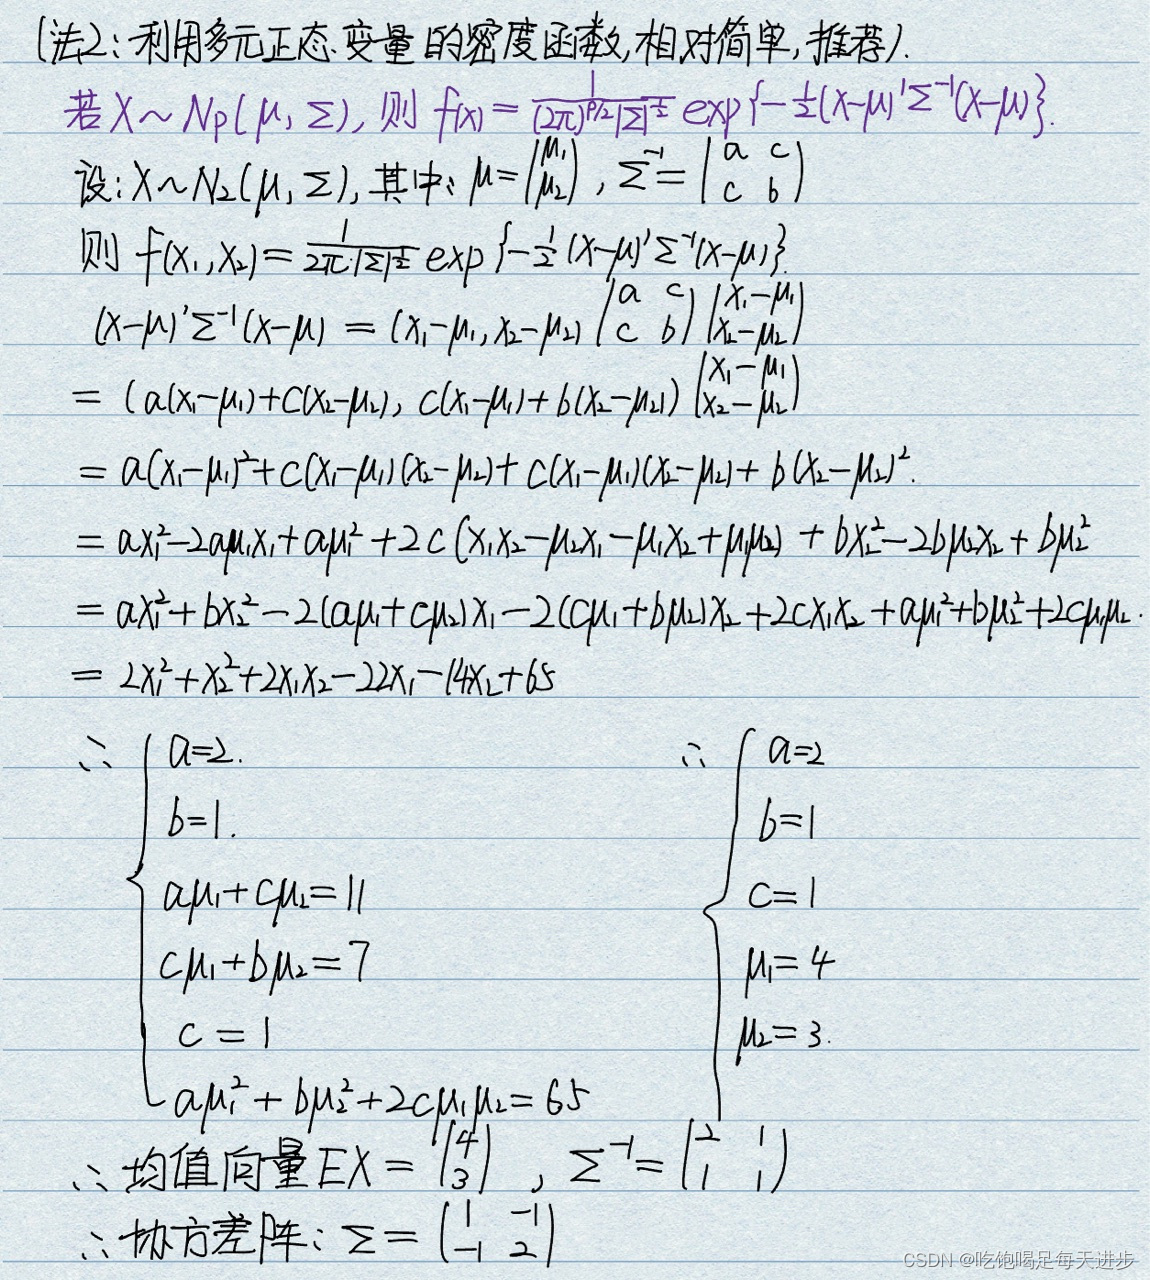 (法2:利用多元正态变量的密度函数,相对简单,推荐).
若X~Np(μ,Σ),则 f(x)=1/((2π)^{p/2}|Σ|^{1/2}) exp{-1/2(x-μ)'Σ⁻¹(x-μ)}.
设:X~N₂(μ,Σ),其中:μ=(μ₁ μ₂),Σ⁻¹=(a c c b)
则 f(x₁,x₂)=1/(2π·|Σ|^{1/2}) exp{-1/2(x-μ)'Σ⁻¹(x-μ)}.
(x-μ)'Σ⁻¹(x-μ) = (x₁-μ₁,x₂-μ₂)(a c c b)(x₁-μ₁ x₂-μ₂)
= (a(x₁-μ₁)+c(x₂-μ₂), c(x₁-μ₁)+b(x₂-μ₂))(x₁-μ₁ x₂-μ₂)
= a(x₁-μ₁)²+c(x₁-μ₁)(x₂-μ₂)+c(x₁-μ₁)(x₂-μ₂)+b(x₂-μ₂)².
= ax₁²-2aμ₁x₁+aμ₁²+2c(x₁x₂-μ₂x₁-μ₁x₂+μ₁μ₂)+bx₂²-2bμ₂x₂+bμ₂²
= ax₁²+bx₂²-2(aμ₁+cμ₂)x₁-2(cμ₁+bμ₂)x₂+2cx₁x₂+aμ₁²+bμ₂²+2cμ₁μ₂.
= 2x₁²+x₂²+2x₁x₂-22x₁-14x₂+65
∴ { a=2.
b=1.
aμ₁+cμ₂=11
cμ₁+bμ₂=7
c=1
aμ₁²+bμ₂²+2cμ₁μ₂=65
∴ { a=2
b=1
c=1
μ₁=4
μ₂=3.
∴均值向量EX=(4 3),Σ⁻¹=(2 1 1 1)
∴协方差阵:Σ=(1 -1 -1 2)
CSDN @吃饱喝足每天进步